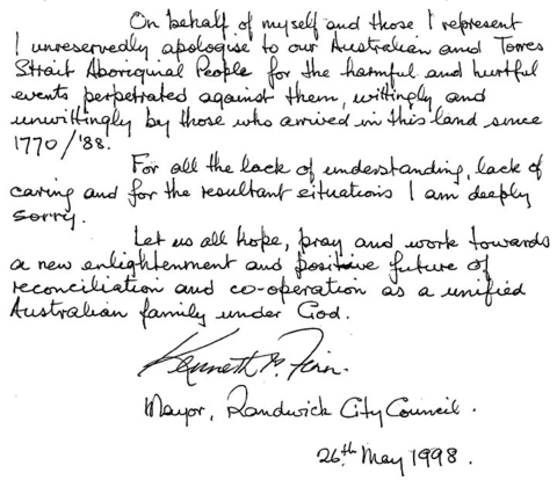 On behalf of myself and those I represent
I unreservedly apologise to our Australian and Torres
Strait Aboriginal People for the harmful and hurtful
events perpetrated against them, wittingly and
unwittingly by those who arrived in this land since
1770/'88.
For all the lack of understanding, lack of
caring and for the resultant situations I am deeply
sorry.
Let us all hope, pray and work towards
a new enlightenment and positive future of
reconciliation and co-operation as a unified
Australian family under God.
Kenneth
Mayor, Randwick City Council.
26th May 1998.